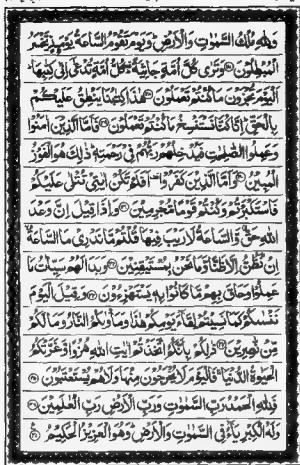 وَلِلّٰهِ مُلْكُ السَّمٰوٰتِ وَالْاَرْضِ وَيَوْمَ تَقُوْمُ السَّاعَةُ يَوْمَىِٕذٍ يَّخْسَرُ
الْمُبْطِلُوْنَ ﴿۲۷﴾ وَتَرٰى كُلَّ اُمَّةٍ جَاثِيَةً كُلُّ اُمَّةٍ تُدْعٰۤى اِلٰى كِتٰبِهَا
اَلْيَوْمَ تُجْزَوْنَ مَا كُنْتُمْ تَعْمَلُوْنَ ﴿۲۸﴾ هٰذَا كِتٰبُنَا يَنْطِقُ عَلَيْكُمْ
بِالْحَقِّ اِنَّا كُنَّا نَسْتَنْسِخُ مَا كُنْتُمْ تَعْمَلُوْنَ ﴿۲۹﴾ فَاَمَّا الَّذِيْنَ اٰمَنُوْا
وَعَمِلُوا الصّٰلِحٰتِ فَيُدْخِلُهُمْ رَبُّهُمْ فِيْ رَحْمَتِهٖ ذٰلِكَ هُوَ الْفَوْزُ
الْمُبِيْنُ ﴿۳۰﴾ وَاَمَّا الَّذِيْنَ كَفَرُوْا اَفَلَمْ تَكُنْ اٰيٰتِيْ تُتْلٰى عَلَيْكُمْ
فَاسْتَكْبَرْتُمْ وَكُنْتُمْ قَوْمًا مُّجْرِمِيْنَ ﴿۳۱﴾ وَاِذَا قِيْلَ اِنَّ وَعْدَ
اللّٰهِ حَقٌّ وَّالسَّاعَةُ لَا رَيْبَ فِيْهَا قُلْتُمْ مَّا نَدْرِيْ مَا السَّاعَةُ
اِنْ نَّظُنُّ اِلَّا ظَنًّا وَّمَا نَحْنُ بِمُسْتَيْقِنِيْنَ ﴿۳۲﴾ وَبَدَا لَهُمْ سَيِّاٰتُ مَا
عَمِلُوْا وَحَاقَ بِهِمْ مَّا كَانُوْا بِهٖ يَسْتَهْزِءُوْنَ ﴿۳۳﴾ وَقِيْلَ الْيَوْمَ
نَنْسٰىكُمْ كَمَا نَسِيْتُمْ لِقَآءَ يَوْمِكُمْ هٰذَا وَمَاْوٰىكُمُ النَّارُ وَمَا لَكُمْ
مِّنْ نّٰصِرِيْنَ ﴿۳۴﴾ ذٰلِكُمْ بِاَنَّكُمُ اتَّخَذْتُمْ اٰيٰتِ اللّٰهِ هُزُوًا وَّغَرَّتْكُمُ
الْحَيٰوةُ الدُّنْيَا فَالْيَوْمَ لَا يُخْرَجُوْنَ مِنْهَا وَلَا هُمْ يُسْتَعْتَبُوْنَ ﴿۳۵﴾
فَلِلّٰهِ الْحَمْدُ رَبِّ السَّمٰوٰتِ وَرَبِّ الْاَرْضِ رَبِّ الْعٰلَمِيْنَ ﴿۳۶﴾
وَلَهُ الْكِبْرِيَآءُ فِي السَّمٰوٰتِ وَالْاَرْضِ وَهُوَ الْعَزِيْزُ الْحَكِيْمُ ﴿۳۷﴾